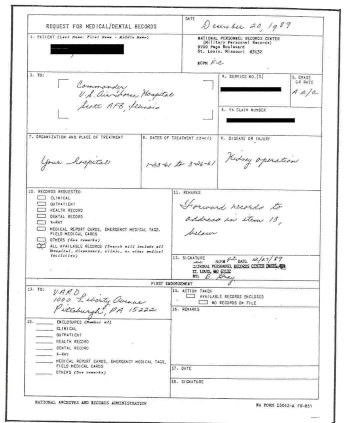 REQUEST FOR MEDICAL/DENTAL RECORDS
DATE
December 20, 1989
1. PATIENT (Last Name- First Name - Middle Name)
NATIONAL PERSONNEL RECORDS CENTER
(Military Personnel Records)
9700 Page Boulevard
St. Louis, Missouri 63132
3. TO:
Commander
U.S. Air Force Hospital
Scott AFB, Illinois
4. SERVICE NO.(S)
5. GRADE OR RATE
A 2/c
6. VA CLAIM NUMBER
7. ORGANIZATION AND PLACE OF TREATMENT
Your hospital
8. DATES OF TREATMENT
1-23-61 to 3-26-61
9. DISEASE OR INJURY
Kidney operation
10. RECORDS REQUESTED
CLINICAL
OUTPATIENT
HEALTH RECORD
DENTAL RECORD
X-RAY
MEDICAL REPORT CARDS, EMERGENCY MEDICAL TAGS, FIELD MEDICAL CARDS
OTHERS (See remarks)
ALL AVAILABLE RECORDS (Search will include all hospital, dispensary, clinic, or other medical facilities)
11. REMARKS
Forward records to
address in item 13,
below
12. SIGNATURE
DATE 12/27/89
NATIONAL PERSONNEL RECORDS CENTER
ST. LOUIS, MO 63132
FIRST ENDORSEMENT
13. TO:
VARO
1000 Liberty Avenue
Pittsburgh, PA 15222
14. ACTION TAKEN
AVAILABLE RECORDS ENCLOSED
NO RECORDS ON FILE
15. ENCLOSURES (Number of)
CLINICAL
OUTPATIENT
HEALTH RECORD
DENTAL RECORD
X-RAY
MEDICAL REPORT CARDS, EMERGENCY MEDICAL TAGS, FIELD MEDICAL CARDS
OTHERS (See remarks)
16. REMARKS
17. DATE
18. SIGNATURE
NATIONAL ARCHIVES AND RECORDS ADMINISTRATION
NA FORM 13042-A